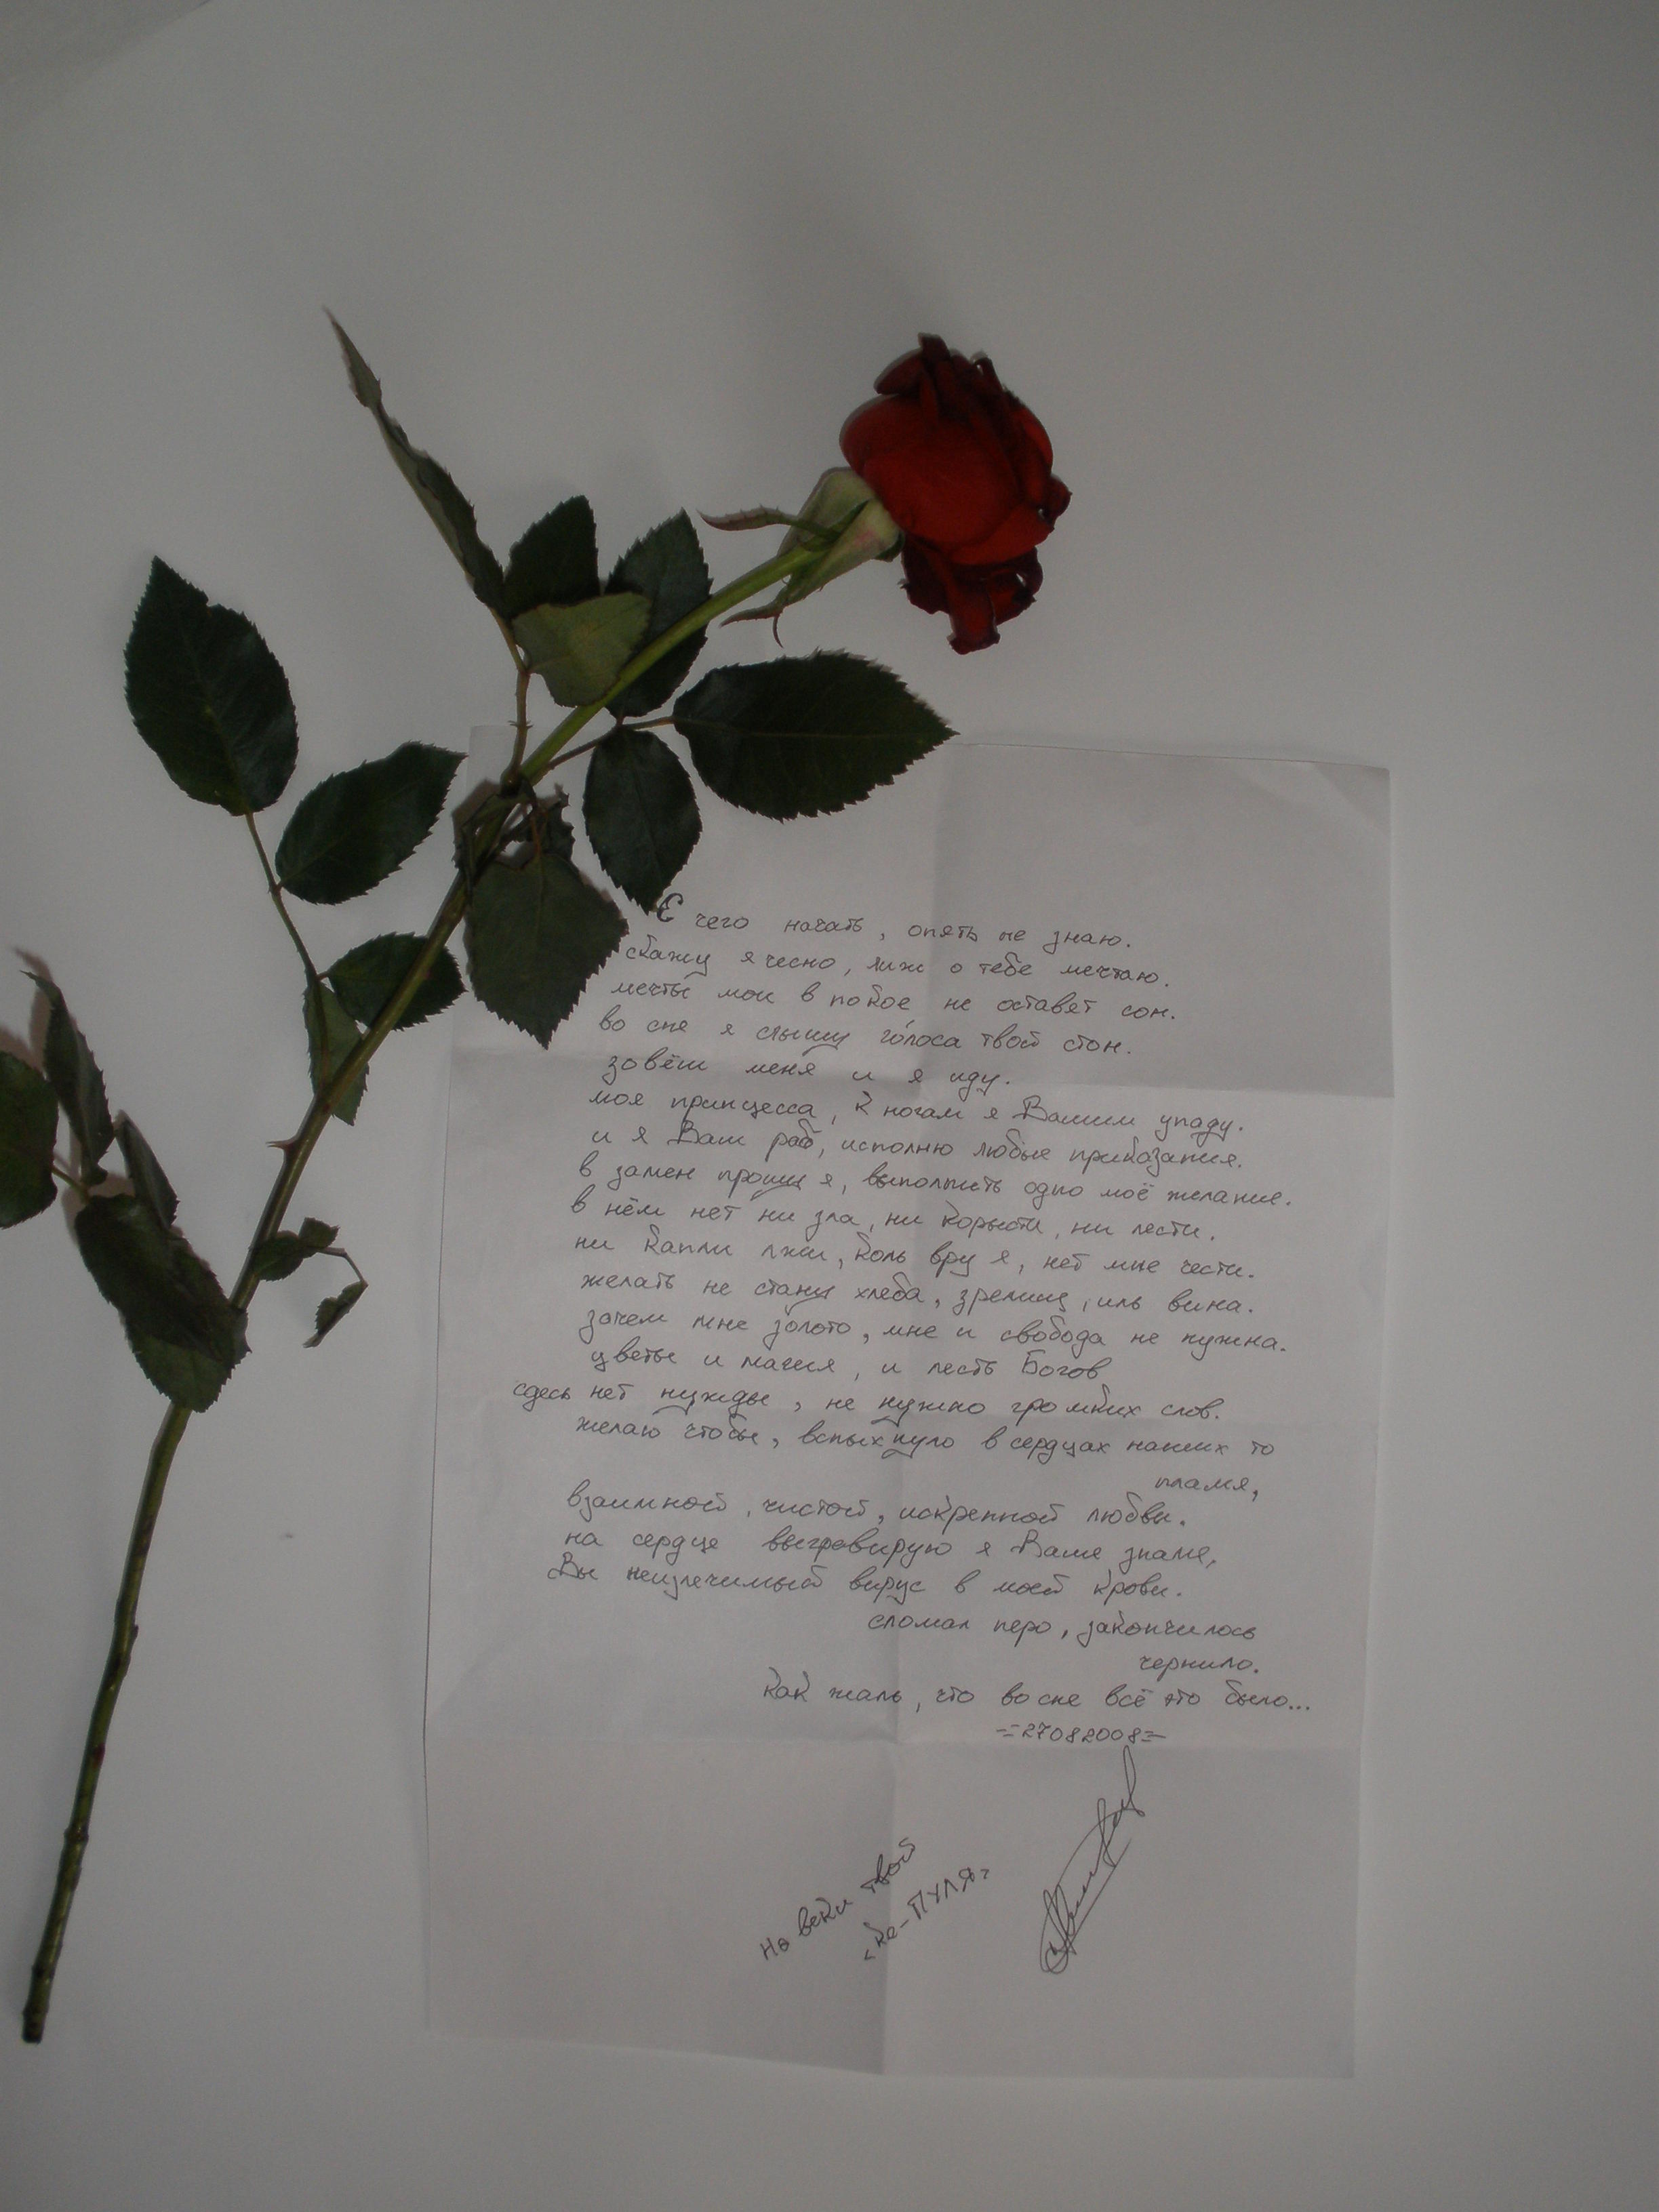 С чего начать, опять не знаю.
скажу я чесно, лиж о тебе мечтаю.
мечты мои в покое не оставят сон.
во сне я слышу го́лоса твой стон.
зовёш меня и я иду.
моя принцесса, к ногам я Вашим упаду.
и я Ваш раб, исполню любые приказания.
в замен прошу я, выполнить одно моё желание.
в нём нет ни зла, ни корысти, ни лести.
ни капли лжи, коль вру я, нет мне чести.
желать не стану хлеба, зрелищ, иль вина.
зачем мне золото, мне и свобода не нужна.
цветы и магия, и лесть Богов
сдесь нет нужды, не нужно громких слов.
желаю чтобы, вспыхнуло в сердцах наших то
пламя,
взаимной, чистой, искренной любви.
на сердце выгровирую я Ваше знамя,
Вы неизлечимый вирус в моей крови.
сломал перо, закончилось
чернило.
Как жаль, что во сне всё это было...
=27082008=
на веки твой
<ка-ПУЛЯ>